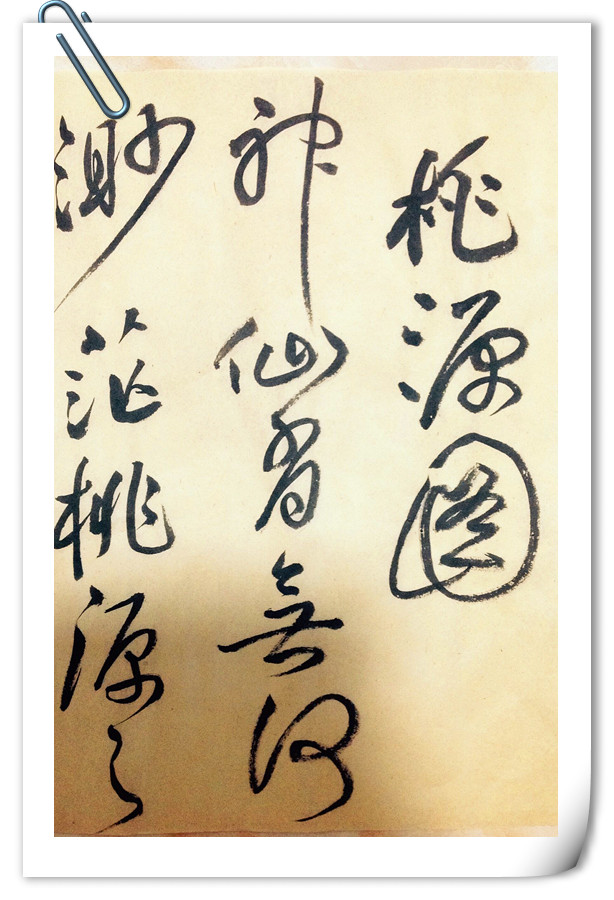 桃源圖
神仙有無何
渺茫桃源之